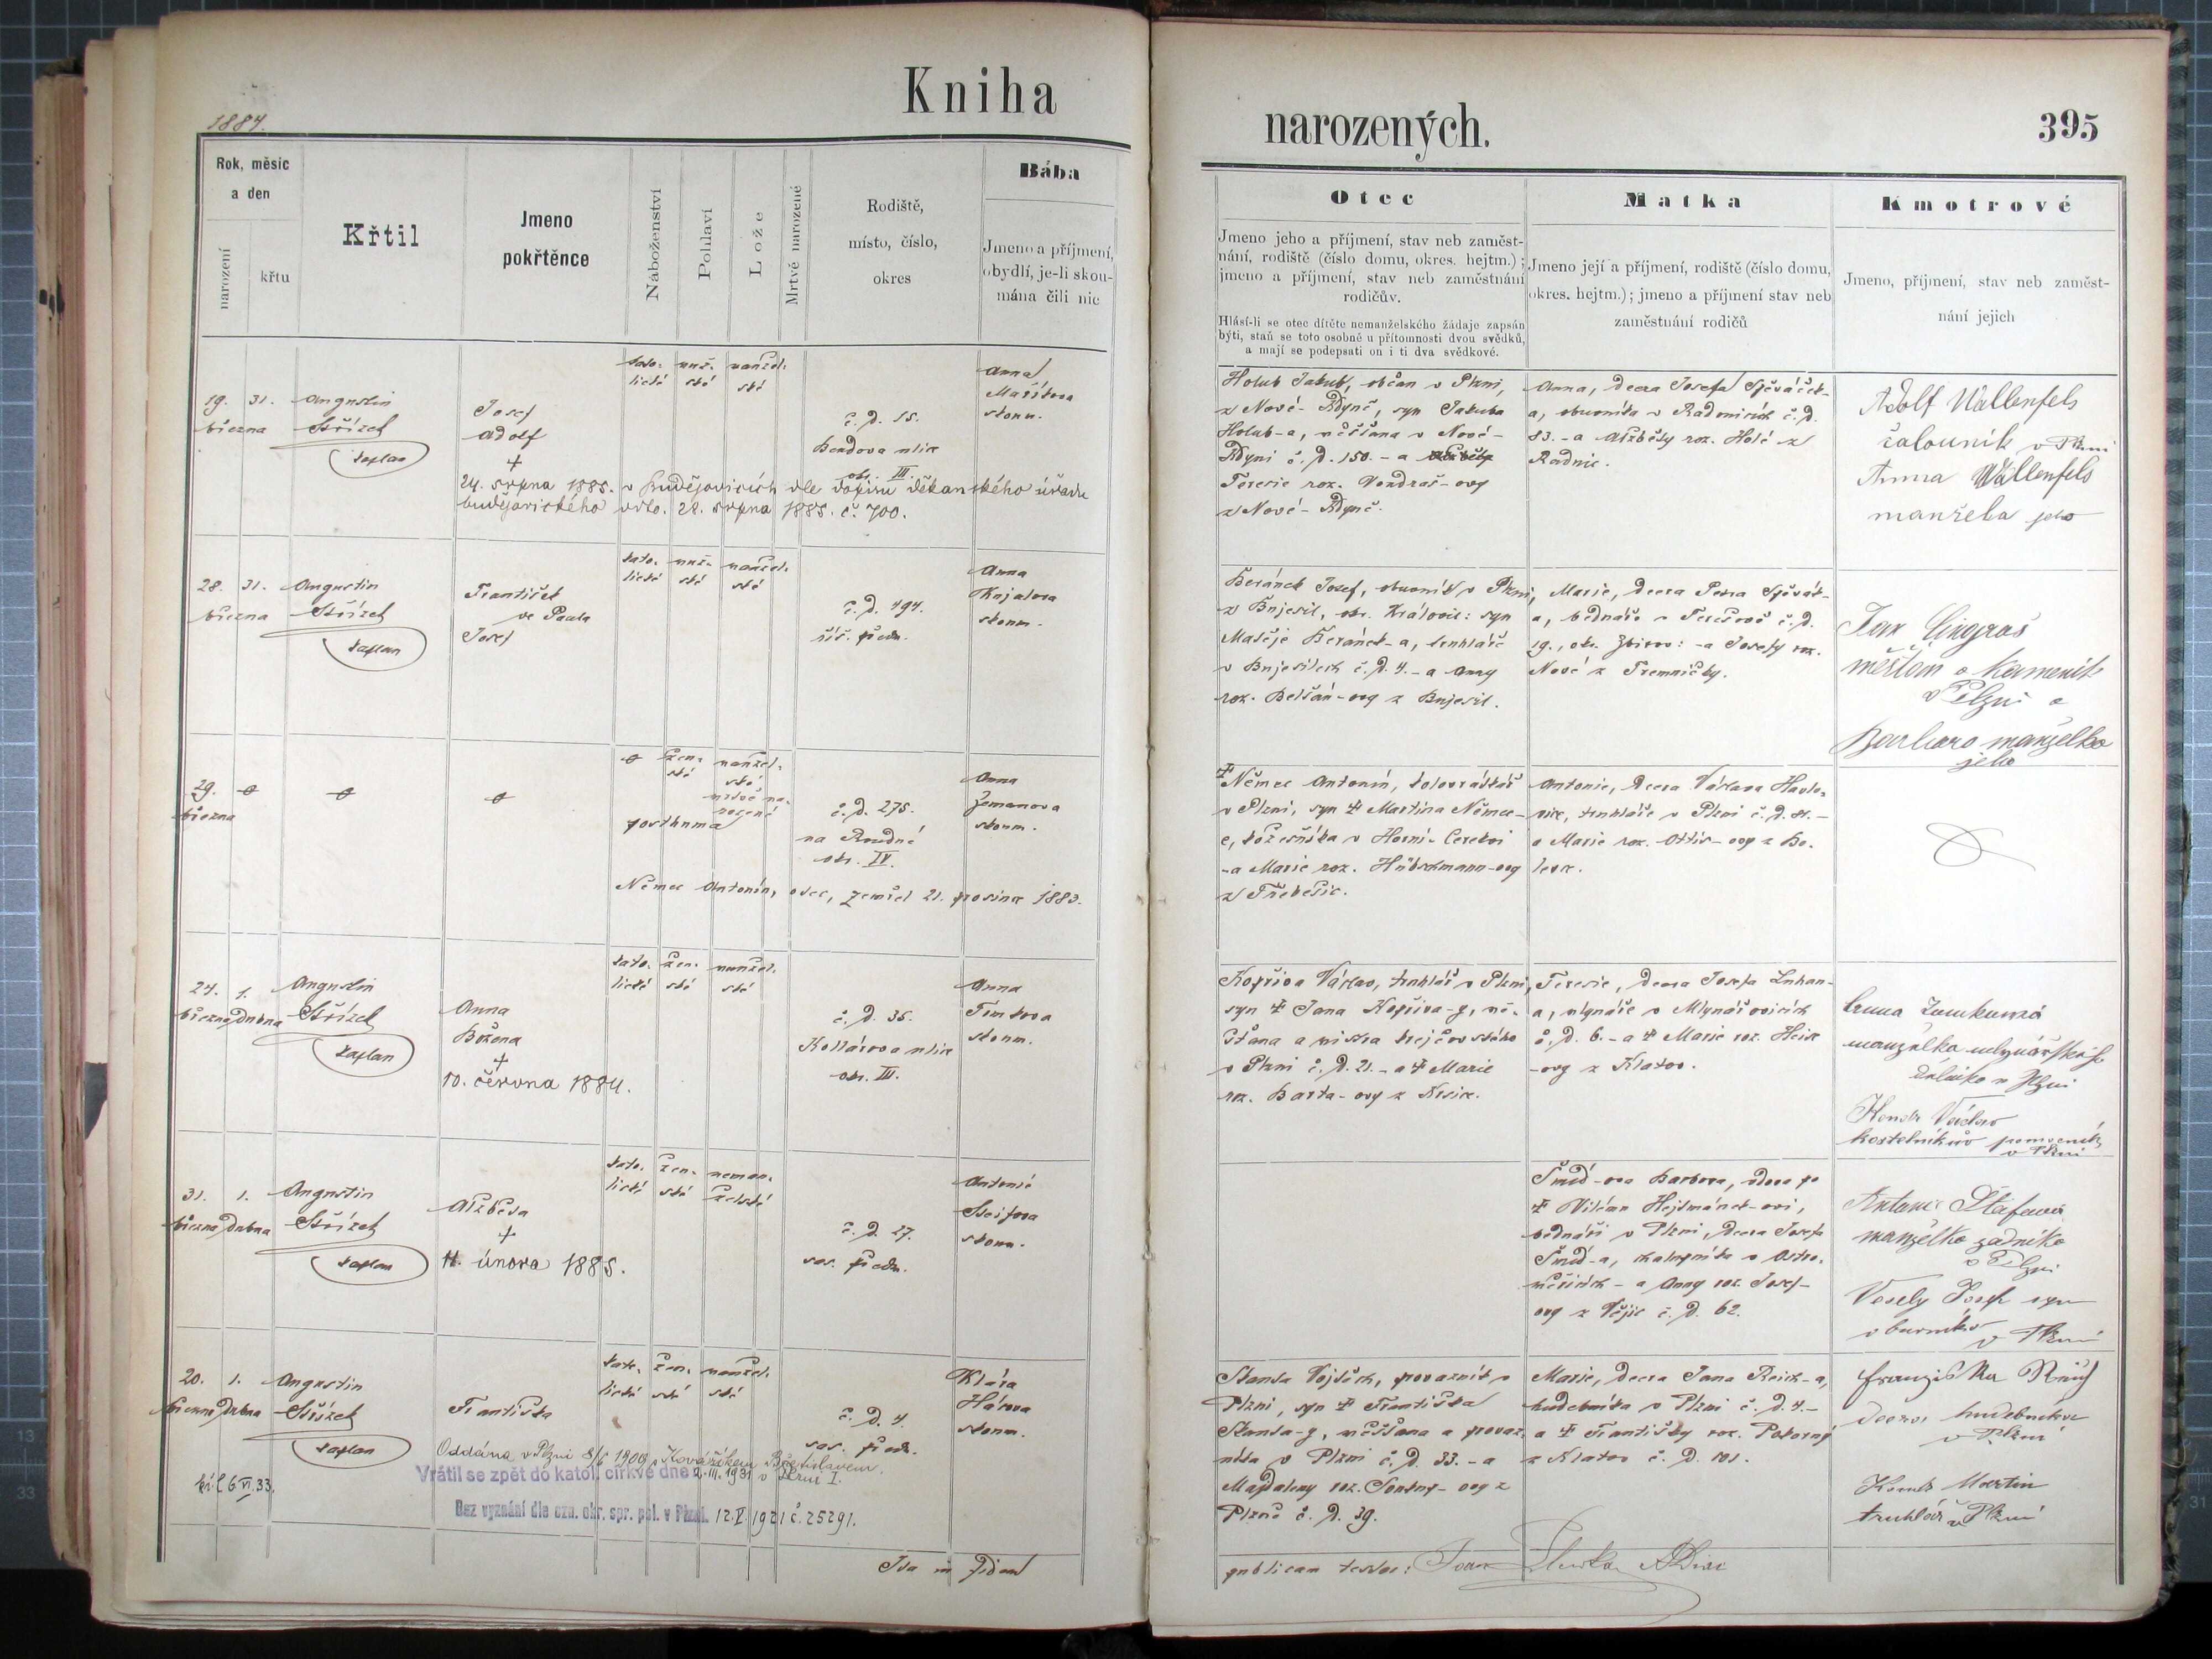 Kniha
1884.
Rok, měsíc
a den
narození
křtu
Křtil
Jmeno
pokřtěnce
Náboženství
Pohlaví
Lože
Mrtvě narozené
Rodiště,
místo, číslo,
okres
Bába
Jmeno a příjmení,
obydlí, je-li skou-
mána čili nic
19. 31.
března
Augustin
Střízek
kaplan
Josef
Adolf
+
kato- muž- manžel-
lické ské ské
č. d. 15.
Bendova ulice
okr. III.
Anna
Maříkova
skoum.
24. srpna 1885. v Budějovicích dle dopisu děkanského úřadu
budějovického ddto. 28. srpna 1885. č. 700.
28. 31.
března
Augustin
Střízek
kaplan
František
de Paula
Josef
kato- muž- manžel-
lické ské ské
č. d. 494.
říš. předm.
Anna
skoum.
29.
března
žen- manžel-
ské ské
mrtvě na-
rozené
posthuma
č. d. 275.
na Roudné
okr. IV.
Anna
Zemanova
skoum.
Němec Antonín, otec, zemřel 21. prosince 1883.
24. 1.
března dubna
Augustin
Střízek
kaplan
Anna
Božena
+
10. června 1884.
kato- žen- manžel-
lické ské ské
č. d. 35.
Kollárova ulice
okr. III.
Anna
skoum.
31. 1.
března dubna
Augustin
Střízek
kaplan
Alžběta
+
11. února 1885.
kato- žen- neman-
lické ské želské
č. d. 27.
sas. předm.
Antonie
skoum.
20. 1.
března dubna
Augustin
Střízek
kaplan
Františka
kato- žen- manžel-
lické ské ské
č. d. 4.
sas. předm.
Klára
Hárova
skoum.
Oddána v Plzni 8/6 1909 s Kovaříkem Břetislavem.
Vrátil se zpět do katol. církve dne 2. III. 1931 v Plzni I.
kř. l. 6 VI. 33.
Bez vyznání dle ozn. okr. spr. pol. v Plzni. 12. V. 1921 č. 25291.
Ita in fidem
narozených.
395
Otec
Jmeno jeho a příjmení, stav neb zaměst-
nání, rodiště (číslo domu, okres. hejtm.);
jmeno a příjmení, stav neb zaměstnání
rodičův.
Hlásí-li se otec dítěte nemanželského žádaje zapsán
býti, staň se toto osobně u přítomnosti dvou svědků,
a mají se podepsati on i ti dva svědkové.
Matka
Jmeno její a příjmení, rodiště (číslo domu,
okres. hejtm.); jmeno a příjmení stav neb
zaměstnání rodičů
Kmotrové
Jmeno, příjmení, stav neb zaměst-
nání jejich
Holub Jakub, občan v Plzni,
z Nové-Kdyně, syn Jakuba
Holub-a, měšťana v Nové-
Kdyni č. d. 150. - a
Teresie roz. Vondraš-ovy
z Nové-Kdyně.
Anna, dcera Josefa Spěváček-
a, obuvníka v Radnicích č. d.
83. - a Alžběty roz. Holé z
Radnic.
Adolf Wallenfels
čalouník v Plzni
Anna Wallenfels
manželka jeho
Beránek Josef, obuvník v Plzni,
z Bujesil, okr. Královic: syn
Matěje Beránek-a, truhláře
v Bujesilech č. d. 4. - a Anny
roz. Belšán-ovy z Bujesil.
Marie, dcera Petra Spěvák-
a, bednáře v Terešově č. d.
19., okr. Zbirov: - a Josefy roz.
Nové z Třemničky.
Jan Cingroš
měšťan a kameník
v Plzni a
Barbara manželka
jeho
‡ Němec Antonín, kolovrátkář
v Plzni, syn ‡ Martina Němec-
e, kožešníka v Horní-Cerekvi
- a Marie roz. Hübschmann-ovy
z Třebešic.
Antonie, dcera Václava Havlo-
vice, truhláře v Plzni č. d. 81. -
a Marie roz. Ottis-ovy z Bo-
levce.
Kopřiva Václav, truhlář v Plzni,
syn ‡ Jana Kopřiva-y, mě-
šťana a mistra krejčovského
v Plzni č. d. 21. - a ‡ Marie
roz. Barta-ovy z Krsic.
Teresie, dcera Josefa Luhan-
a, mlynáře v Mlynářovicích
č. d. 6. - a ‡ Marie roz. Heic
-ovy z Klatov.
Anna
manželka mlynářského
dělníka v Plzni
Václav
kostelníkův pomocník
v Plzni
Šmíd-ova Barbora, vdova po
‡ Vilém Hejtmánek-ovi,
bednáři v Plzni, dcera Josefa
Šmíd-a, chalupníka v Ostro-
měřicích - a Anny roz. Josef-
ovy z Vějic č. d. 62.
Antonie
manželka zedníka
v Plzni
Veselý Josef syn
obuvníka
v Plzni
Standa Vojtěch, provazník v
Plzni, syn ‡ Františka
Standa-y, měšťana a provaz-
níka v Plzni č. d. 33. - a
Majdaleny roz. Soukup-ovy z
Plzně č. d. 39.
Marie, dcera Jana Reich-a,
hudebníka v Plzni č. d. 4. -
a ‡ Františky roz. Pokorný
z Klatov č. d. 101.
Franziska
Dcera hudebníka
v Plzni
Martin
truhlář v Plzni
publicam testor: